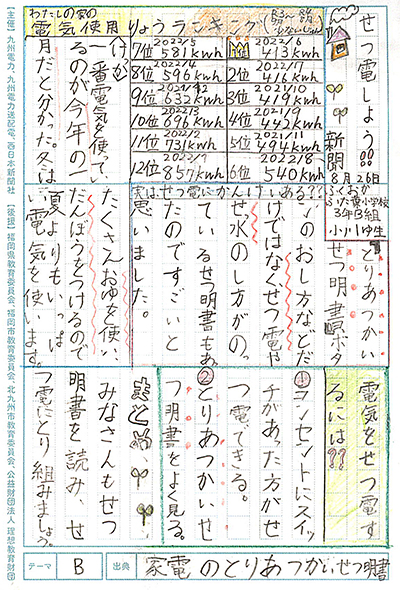 せつ電しよう!!
新聞
8月26日
3年B組
小川ゆ生
わたしの家の
電気使用りょうランキング
1位 2022/6 413kwh
2位 2022/7 416kwh
3位 2021/10 419kwh
4位 2021/9 442kwh
5位 2021/11 494kwh
6位 2022/8 540kwh
7位 2022/5 581kwh
8位 2022/4 596kwh
9位 2021/12 632kwh
10位 2022/3 696kwh
11位 2022/2 731kwh
12位 2022/1 857kwh
けっか
一番電気を使ってい
るのが今年の一
月だと分かった。冬は
実はせつ電にかんけいある??
とりあつかい
せつ明書 ボタ
ンのおし方などだ
けではなくせつ電や
せっ水のしかたがのっ
ているせつ明書もあっ
たのですごいと
思いました。
たくさんおゆを使い、
だんぼうをつけるので
夏よりもいっぱ
い電気を使います。
電気をせつ電す
るには??
①コンセントにスイッ
チがあった方がせ
つ電できる。
②とりあつかいせ
つ明書をよく見る。
まとめ
みなさんもせつ
明書を読み、せ
つ電にとり組みましょう。
テーマ B 出典 家電のとりあつかいせつ明書
【主催】九州電力、九州電力送配電、西日本新聞社 【後援】福岡県教育委員会、福岡市教育委員会、北九州市教育委員会、公益財団法人 理想教育財団